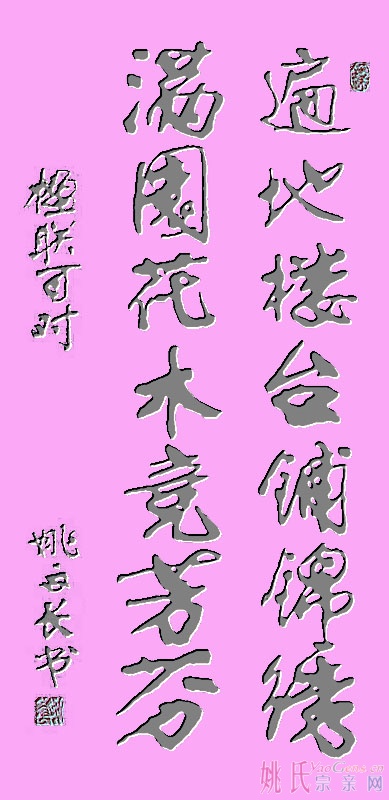 遍地楼台铺锦绣
满园花木竞芳芬
楹联
姚长书
姚氏宗亲网
YaoGens.cn